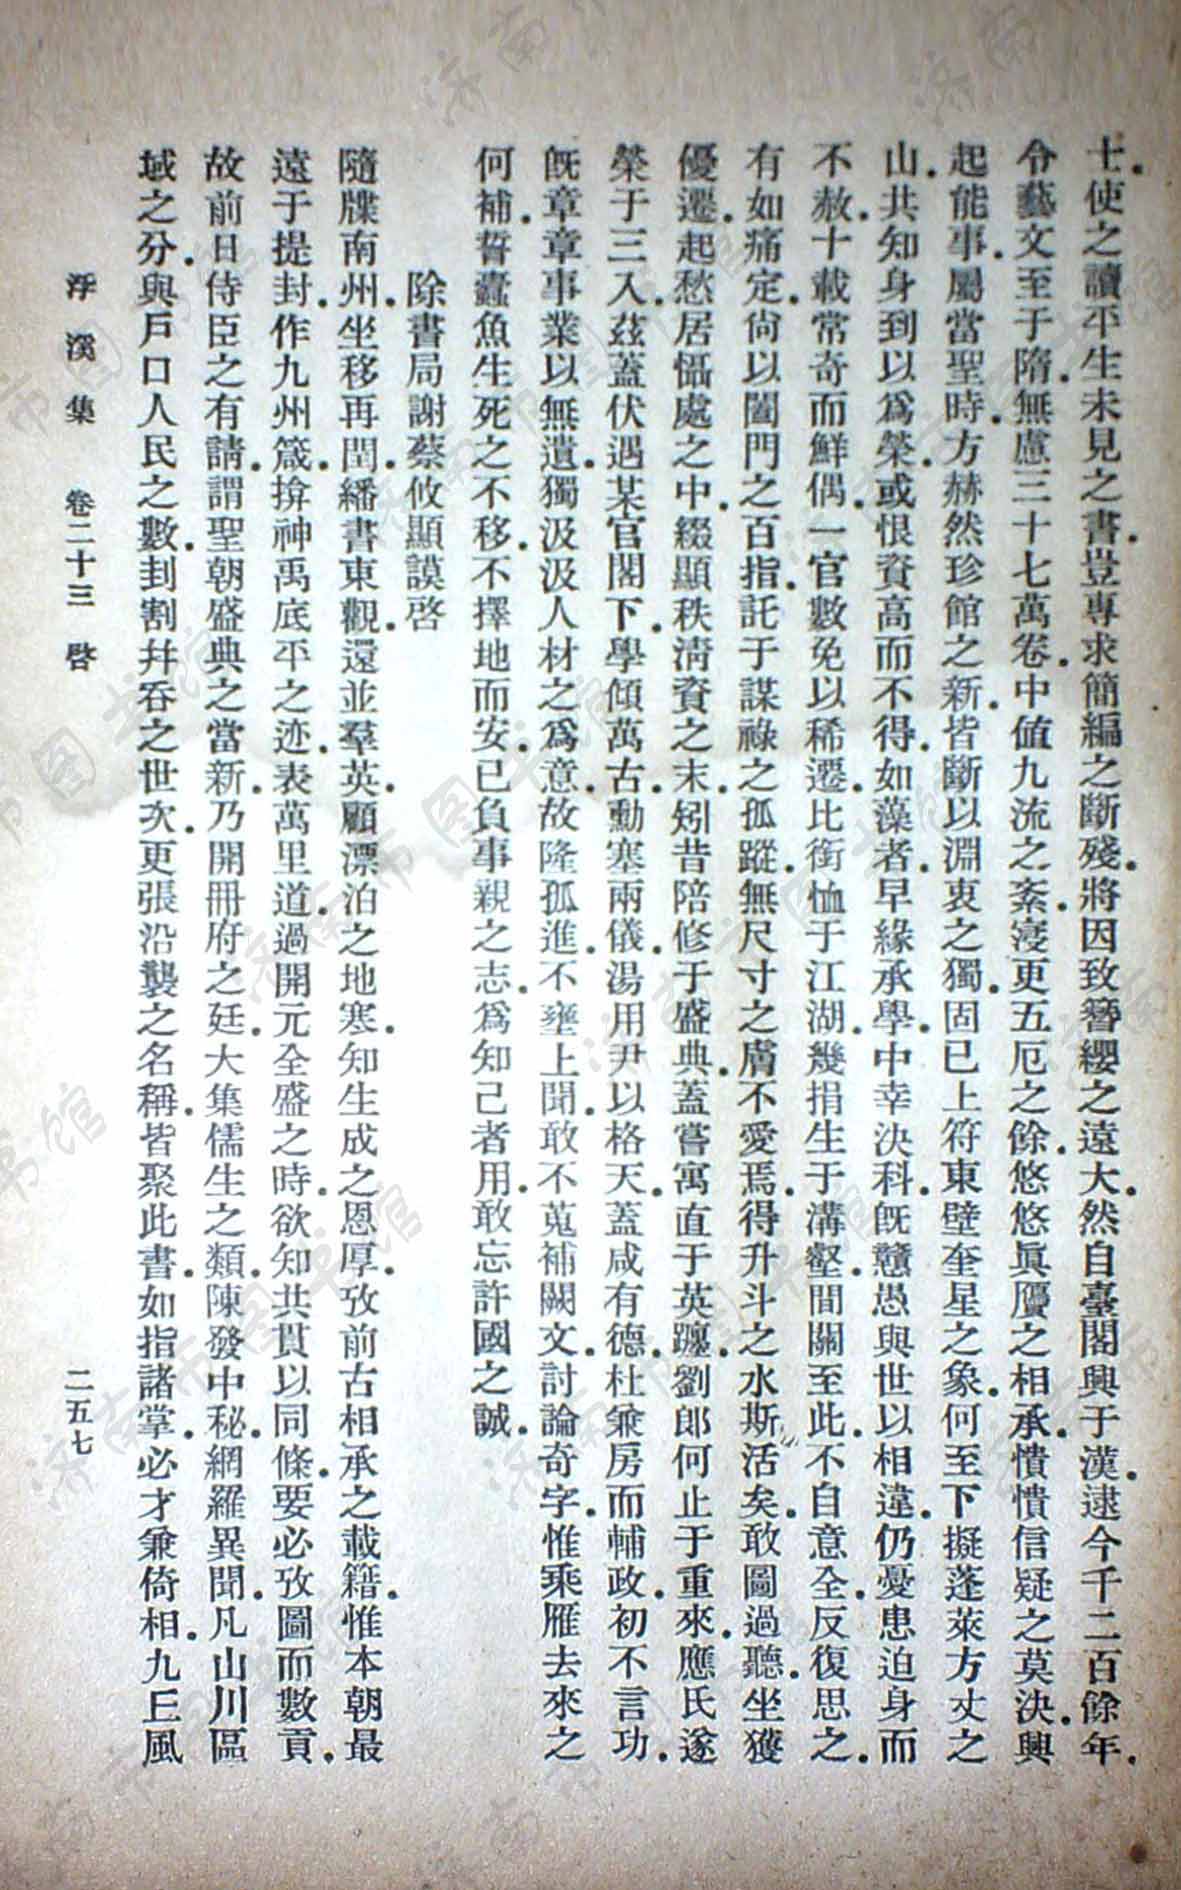 士使之讀平生未見之書豈專求簡編之斷殘將因致簪纓之遠大然自臺閣興于漢逮今千二百餘年
令藝文至于隋無慮三十七萬卷中值九流之紊寖更五厄之餘悠悠眞贗之相承憒憒信疑之莫決興
起能事屬當聖時方赫然珍館之新皆斷以淵衷之獨固已上符東壁奎星之象何至下擬蓬萊方丈之
山共知身到以爲榮或恨資高而不得如藻者早緣承學中幸決科旣戇愚與世以相違仍憂患迫身而
不赦十載常奇而鮮偶一官數免以稀遷比銜恤于江湖幾捐生于溝壑間關至此不自意全反復思之
有如痛定尙以闔門之百指託于謀祿之孤蹤無尺寸之膚不愛焉得升斗之水斯活矣敢圖過聽坐獲
優遷起愁居懾處之中綴顯秩淸資之末矧昔陪修于盛典蓋嘗寓直于英躔劉郎何止于重來應氏遂
榮于三入茲蓋伏遇某官閣下學傾萬古勳塞兩儀湯用尹以格天蓋咸有德杜兼房而輔政初不言功
旣章章事業以無遺獨汲汲人材之爲意故隆孤進不壅上聞敢不蒐補闕文討論奇字惟乘雁去來之
何補誓蠹魚生死之不移不擇地而安已負事親之志爲知己者用敢忘許國之誠
除書局謝蔡攸顯謨啓
隨牒南州坐移再閏繙書東觀還並羣英顧漂泊之地寒知生成之恩厚攷前古相承之載籍惟本朝最
遠于提封作九州箴揜神禹底平之迹表萬里道過開元全盛之時欲知共貫以同條要必攷圖而數貢
故前日侍臣之有請謂聖朝盛典之當新乃開冊府之廷大集儒生之類陳發中秘網羅異聞凡山川區
域之分與戶口人民之數刲割幷吞之世次更張沿襲之名稱皆聚此書如指諸掌必才兼倚相九丘風
浮溪集 卷二十三 啓 二五七